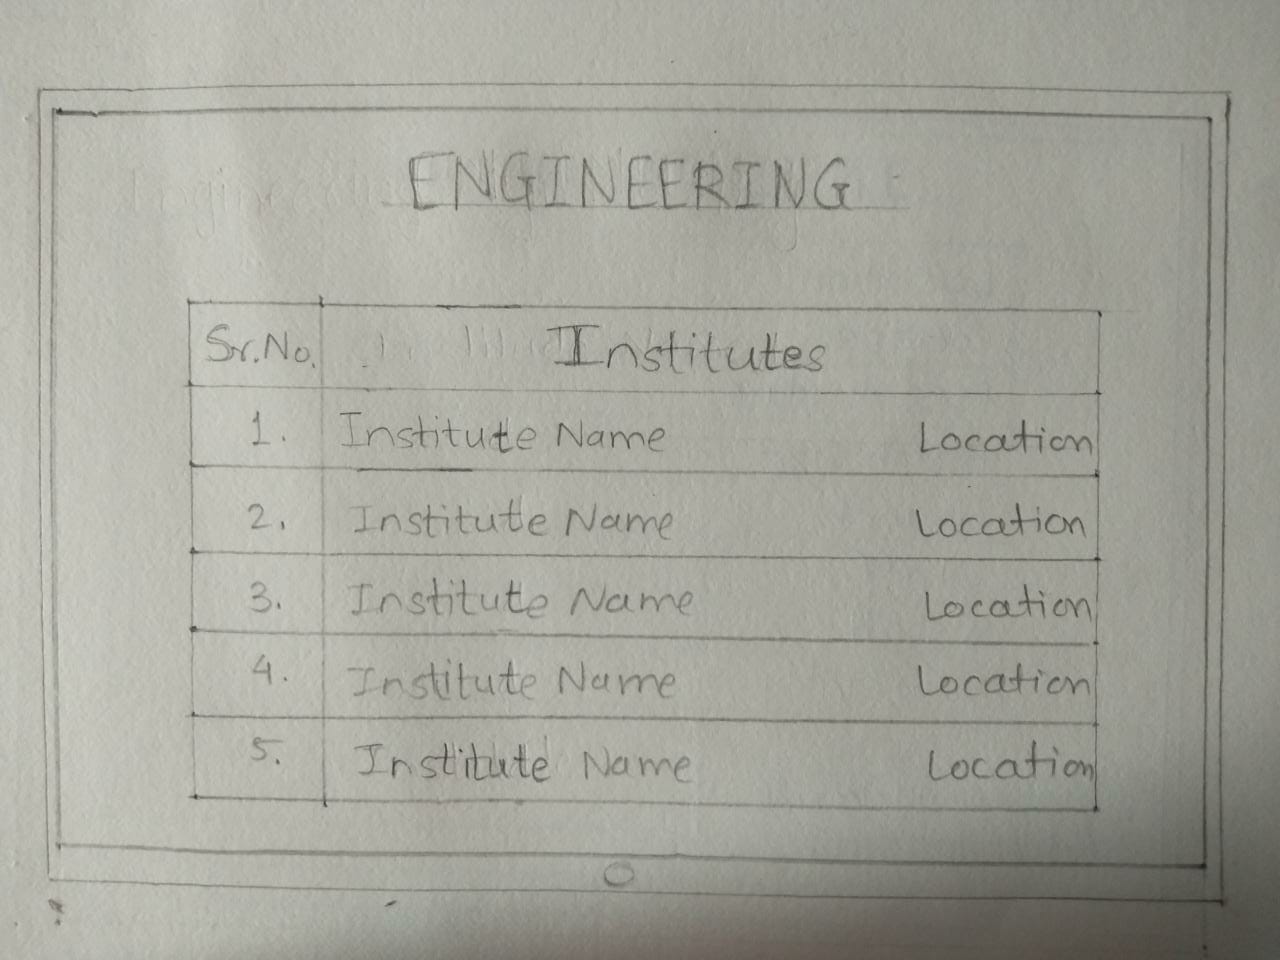 ENGINEERING
Sr.No. Institutes
1. Institute Name Location
2. Institute Name Location
3. Institute Name Location
4. Institute Name Location
5. Institute Name Location